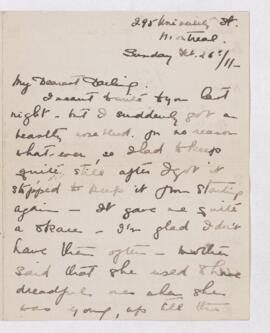 295 University St.
Montreal.
Sunday Feb. 26th/11 -
My Dearest Darling:
I meant to write to you last
night - but I suddenly got a
beastly nose bleed for no reason
what-ever, so I had to keep
quite still after I got it
stopped to keep it from starting
again - It gave me quite
a scare - I'm glad I don't
have them often - mother
said that she used to have
dreadful ones when she
was young, up till the